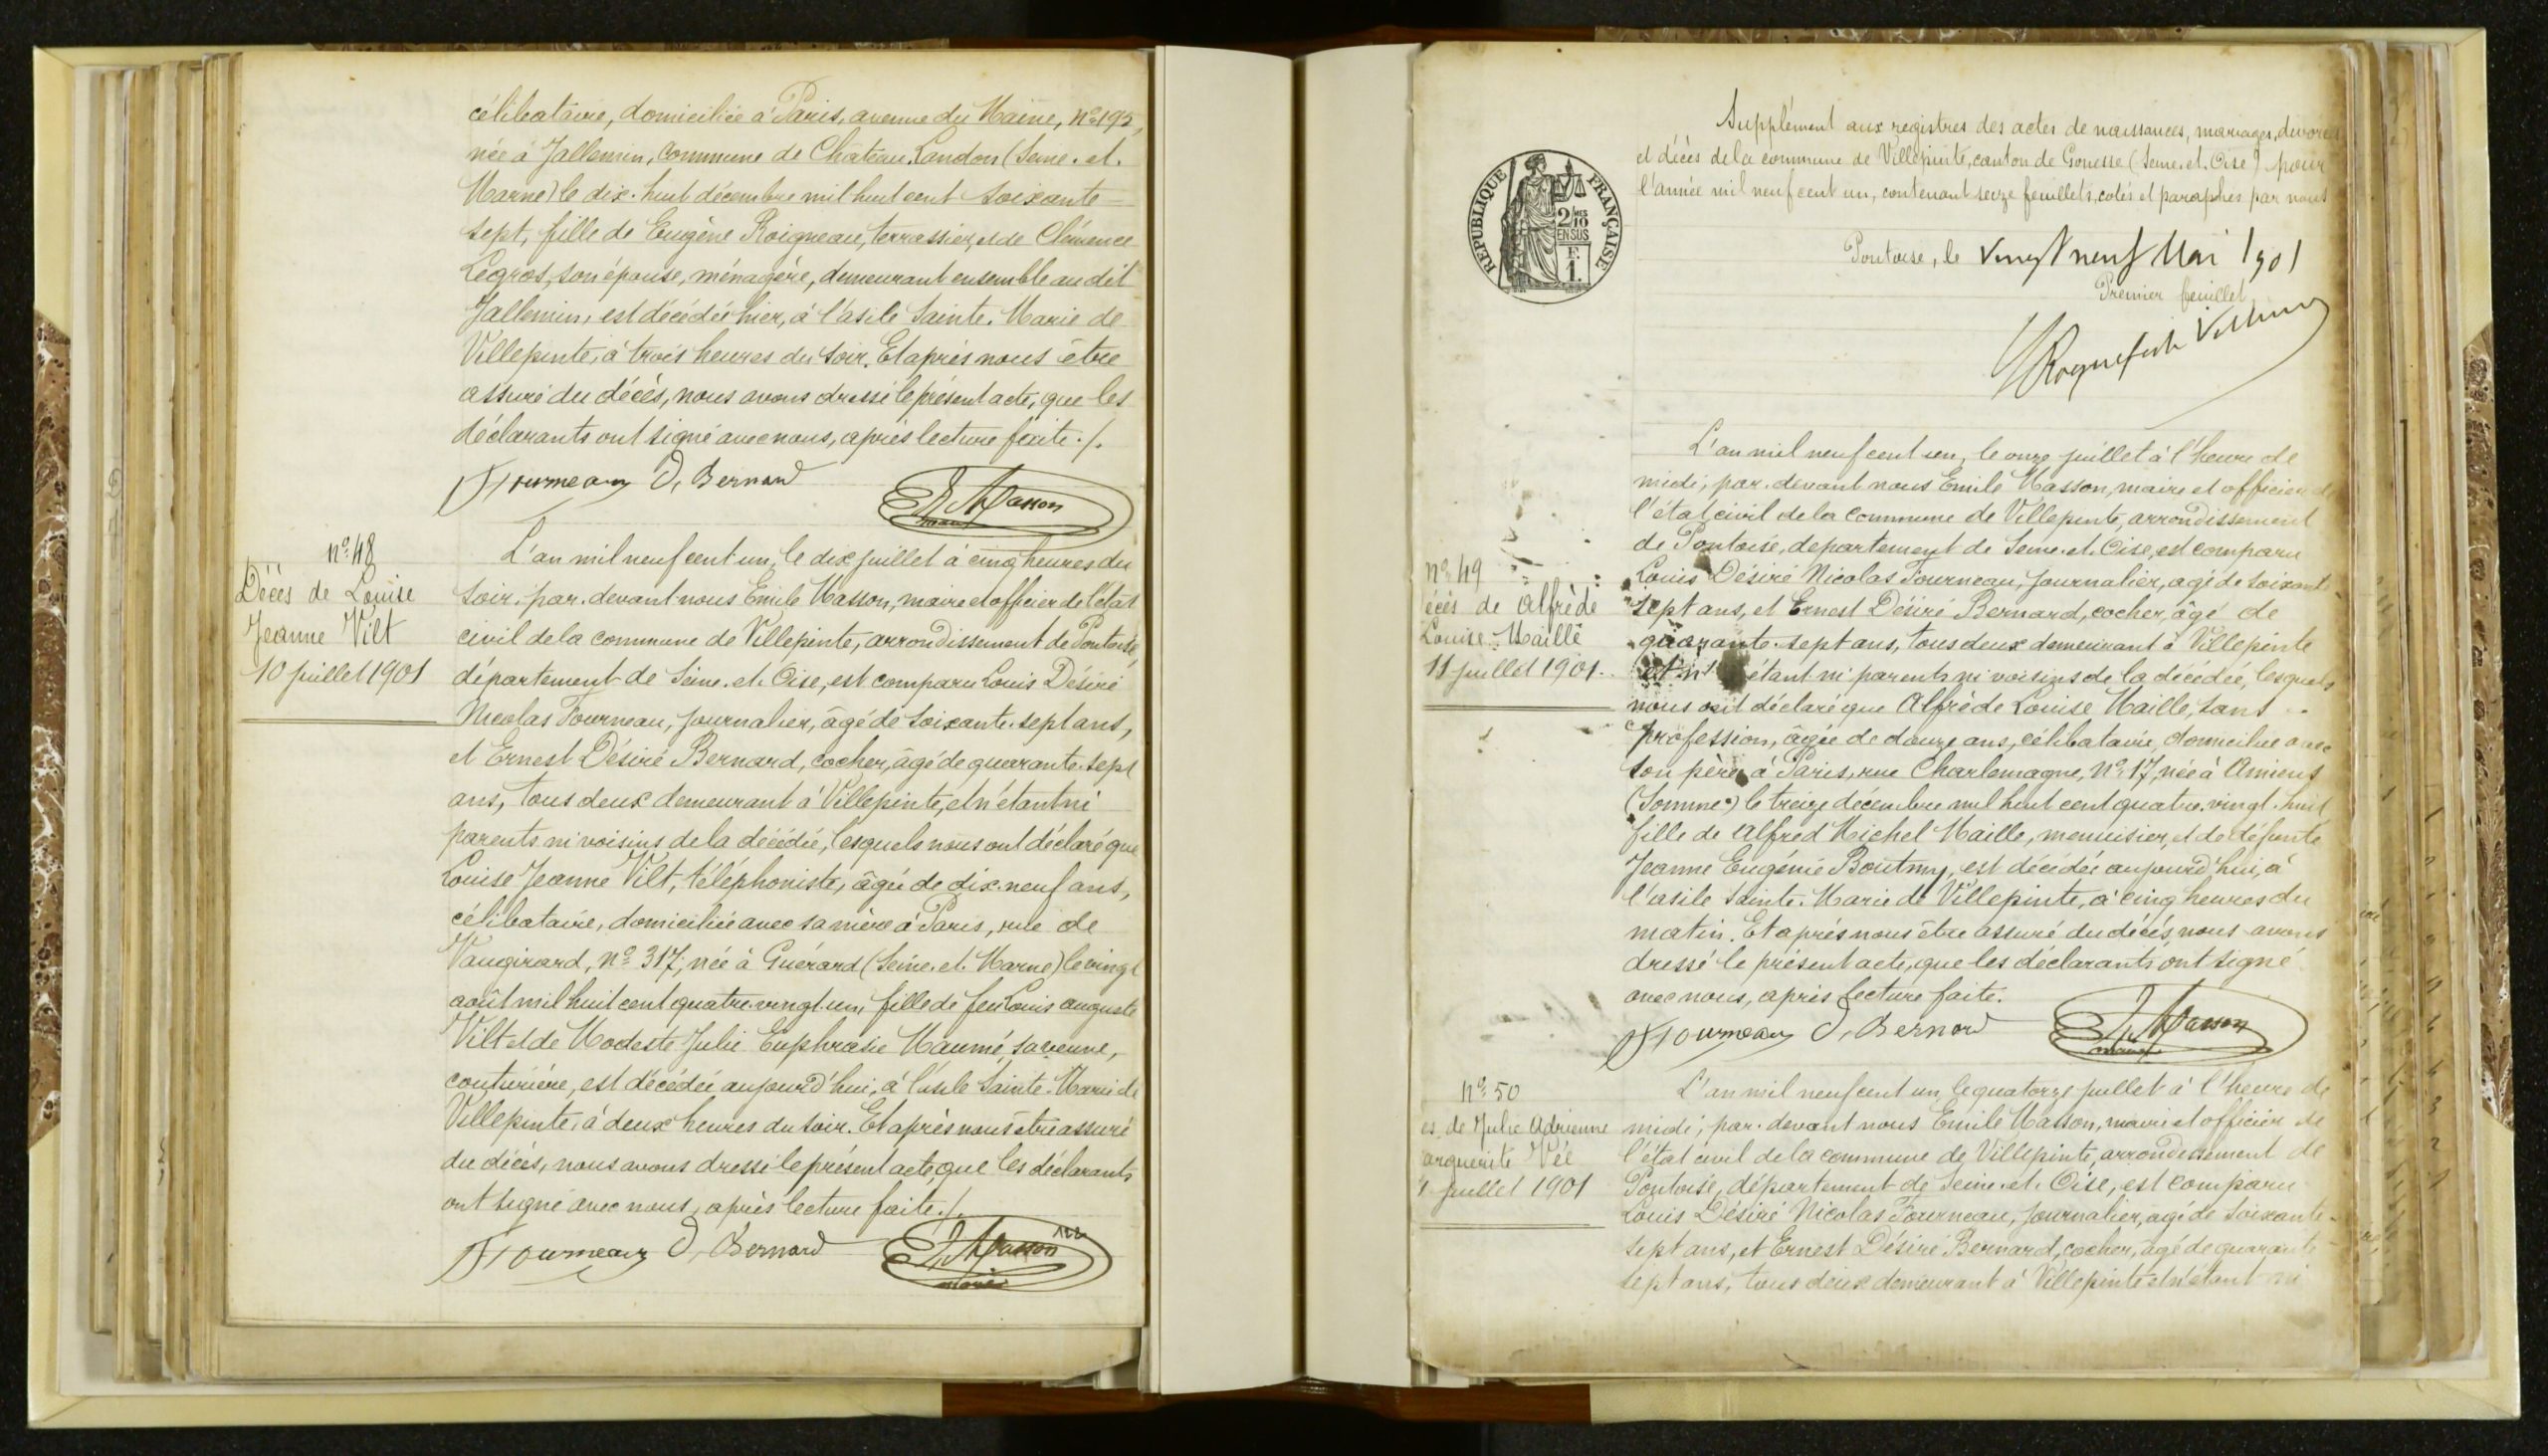 célibataire, domiciliée à Paris, avenue du Maine, nº 192,
née à Jallemin, commune de Château-Landon (Seine-et-
Marne) le dix-huit décembre mil huit cent soixante
sept, fille de Eugène Roigneau, terrassier, et de Clémence
Legros, son épouse, ménagère, demeurant ensemble au dit
Jallemin, est décédée hier, à l'asile Sainte-Marie de
Villepinte, à trois heures du soir. Et après nous être
assuré du décès, nous avons dressé le présent acte, que les
déclarants ont signé avec nous, après lecture faite ./.
Fourneaux D, Bernard E. Masson
maire
nº 48
Décès de Louise
Jeanne Vilt
10 juillet 1901
L'an mil neuf cent un, le dix juillet à cinq heures du
soir, par-devant nous Emile Masson, maire et officier de l'état
civil de la commune de Villepinte, arrondissement de Pontoise,
département de Seine-et-Oise, est comparu Louis Désiré
Nicolas Fourneau, journalier, âgé de soixante-sept ans,
et Ernest Désiré Bernard, cocher, âgé de quarante-sept
ans, tous deux demeurant à Villepinte, et n'étant ni
parents ni voisins de la décédée, lesquels nous ont déclaré que
Louise Jeanne Vilt, téléphoniste, âgée de dix-neuf ans,
célibataire, domiciliée avec sa mère à Paris, rue de
Vaugirard, nº 317, née à Guérard (Seine-et-Marne) le vingt
août mil huit cent quatre-vingt-un, fille de feu Louis auguste
Vilt et de Modeste Julie Euphrasie Maumé, sa veuve,
couturière, est décédée aujourd'hui, à l'asile Sainte-Marie de
Villepinte, à deux heures du soir. Et après nous être assuré
du décès, nous avons dressé le présent acte, que les déclarants
ont signé avec nous, après lecture faite ./.
Fourneaux D, Bernard E. Masson
maire
Supplément aux registres des actes de naissances, mariages, divorces
et décès de la commune de Villepinte, canton de Gonesse (Seine-et-Oise) pour
l'année mil neuf cent un, contenant seize feuillets, cotés et paraphés par nous
Pontoise, le vingt neuf Mai 1901
Premier feuillet
RÉPUBLIQUE FRANÇAISE
2/10
EN SUS
F.
1.
L'an mil neuf cent un, le onze juillet à l'heure de
midi; par-devant nous Emile Masson, maire et officier de
l'état civil de la commune de Villepinte, arrondissement
de Pontoise, département de Seine-et-Oise, est comparu
nº 49
écès de Alfrède
Louise Maille
11 juillet 1901.
Louis Désiré Nicolas Fourneau, journalier, âgé de soixante-
sept ans, et Ernest Désiré Bernard, cocher, âgé de
quarante-sept ans, tous deux demeurant à Villepinte
et n'étant ni parents ni voisins de la décédée, lesquels
nous ont déclaré que Alfrède Louise Maille, sans
profession, âgée de douze ans, célibataire, domiciliée avec
son père à Paris, rue Charlemagne, nº 17, née à Amiens
(Somme) le treize décembre mil huit cent quatre-vingt-huit
fille de Alfred Michel Maille, menuisier, et de défunte
Jeanne Eugénie Boutmy, est décédée aujourd'hui, à
l'asile Sainte-Marie de Villepinte, à cinq heures du
matin. Et après nous être assuré du décès, nous avons
dressé le présent acte, que les déclarants ont signé
avec nous, après lecture faite.
Fourneaux D, Bernard E. Masson
maire
nº 50
ès de Julie Adrienne
arguerite Vée
juillet 1901
L'an mil neuf cent un, le quatorze juillet à l'heure de
midi; par-devant nous Emile Masson, maire et officier de
l'état civil de la commune de Villepinte, arrondissement de
Pontoise, département de Seine-et-Oise, est comparu
Louis Désiré Nicolas Fourneau, journalier, âgé de soixante-
sept ans, et Ernest Désiré Bernard, cocher, âgé de quarante-
sept ans, tous deux demeurant à Villepinte et n'étant ni